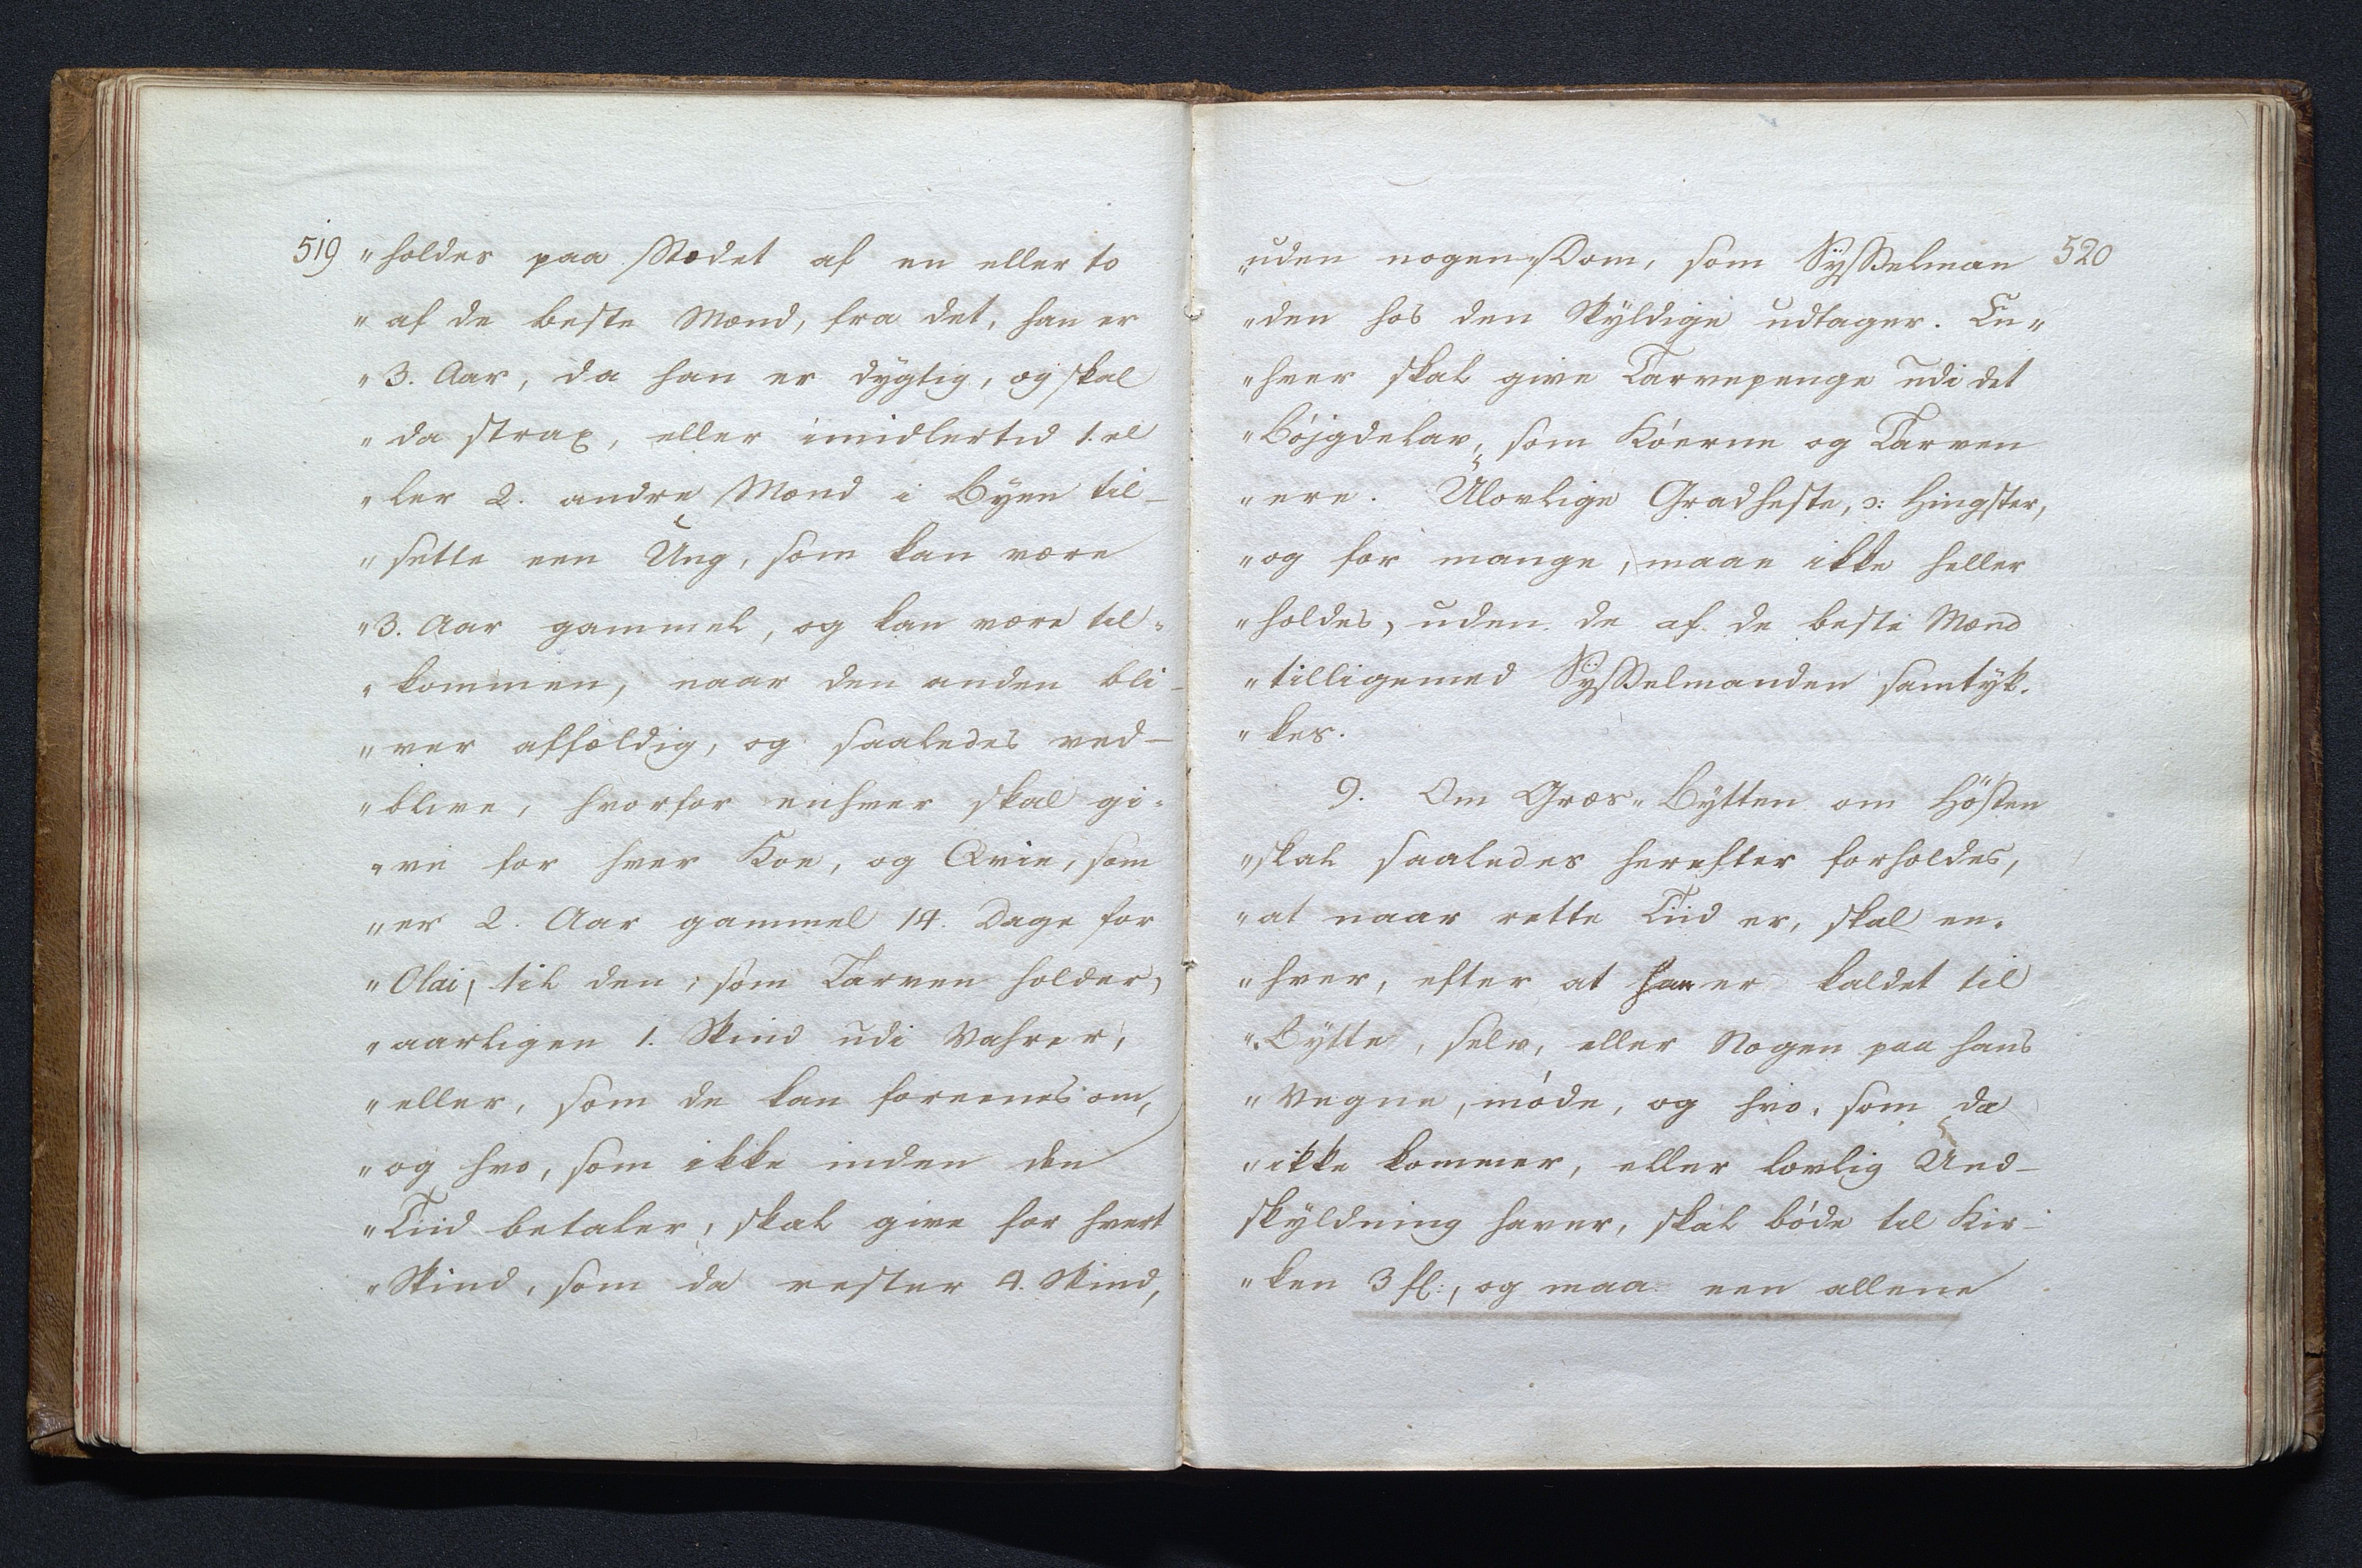 519 "holdes paa Stædet af en eller to
"af de beste Mænd, fra det, han er
"3. Aar, da han er dygtig, og skal
"da strax, eller imidlertid 1. el
"ler 2. andre Mænd i Byen til-
"sette een Ung, som kan være
"3. Aar gammel, og kan være til-
"kommen, naar den anden bli-
"ver affældig, og saaledes ved-
"blive, hvorfor enhver skal gi-
"ve for hver Koe, og Qvie, som
"er 2. Aar gammel 14. Dage for
"Olai, til den, som Tarven holder,
"aarligen 1. Skind udi Vahrer,
"eller, som de kan foreenes om,
"og hvo, som ikke inden den
"Tiid betaler, skal give for hvert
"Skind, som da rester 4. Skind,
"uden nogen Dom, som Sÿsselman 520
"den hos den Skÿldige udtager. En"
"hver skal give Tarvepenge udi det
"Bójgdelav, som Kóerne og Tarven
"ere. Ulovlige Gradheste, ɔ: Hingster,
"og for mange, maae ikke heller
"holdes, uden de af de beste Mænd
"tilligemed Sÿsselmanden samtÿk-
"kes.
9. Om Græs-Bÿtten om Hösten
"skal saaledes herefter forholdes,
"at naar rette Tiid er, skal en-
"hver, efter at han er kaldet til
"Bÿtte, selv, eller Nogen paa hans
"Vegne, móde, og hvo, som da
"ikke kommer, eller lovlig Und-
skÿldning haver, skal bóde til Kir-
"ken 3 fl:, og maa een allene